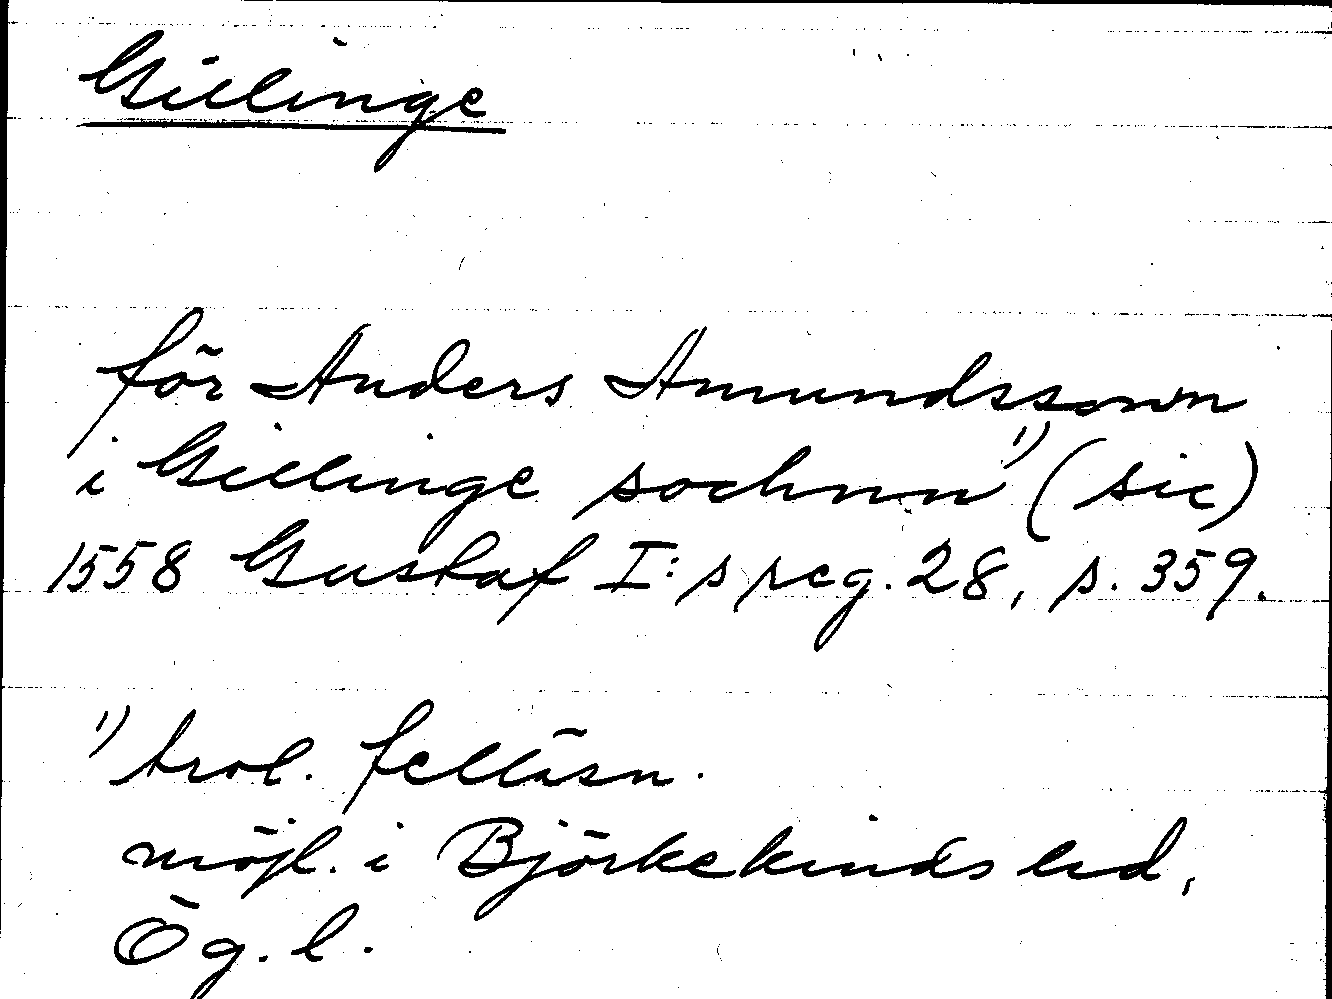 Gillinge
för Anders Amundssonn
i Gillinge sochnn 1) (sic)
1558 Gustaf I:s reg. 28, s. 359.
1) trol. felläsn.
möjl. i Björkekinds hd,
Ög. l.